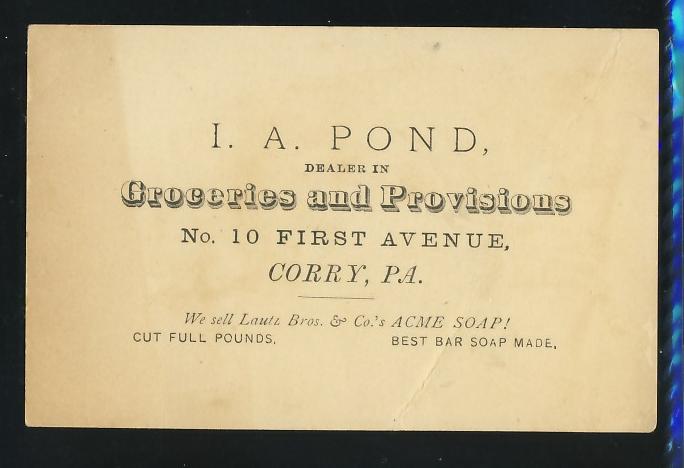 I. A. POND,
DEALER IN
Groceries and Provisions
No. 10 FIRST AVENUE,
CORRY, PA.
We sell Lautz Bros. & Co.'s ACME SOAP!
CUT FULL POUNDS, BEST BAR SOAP MADE,